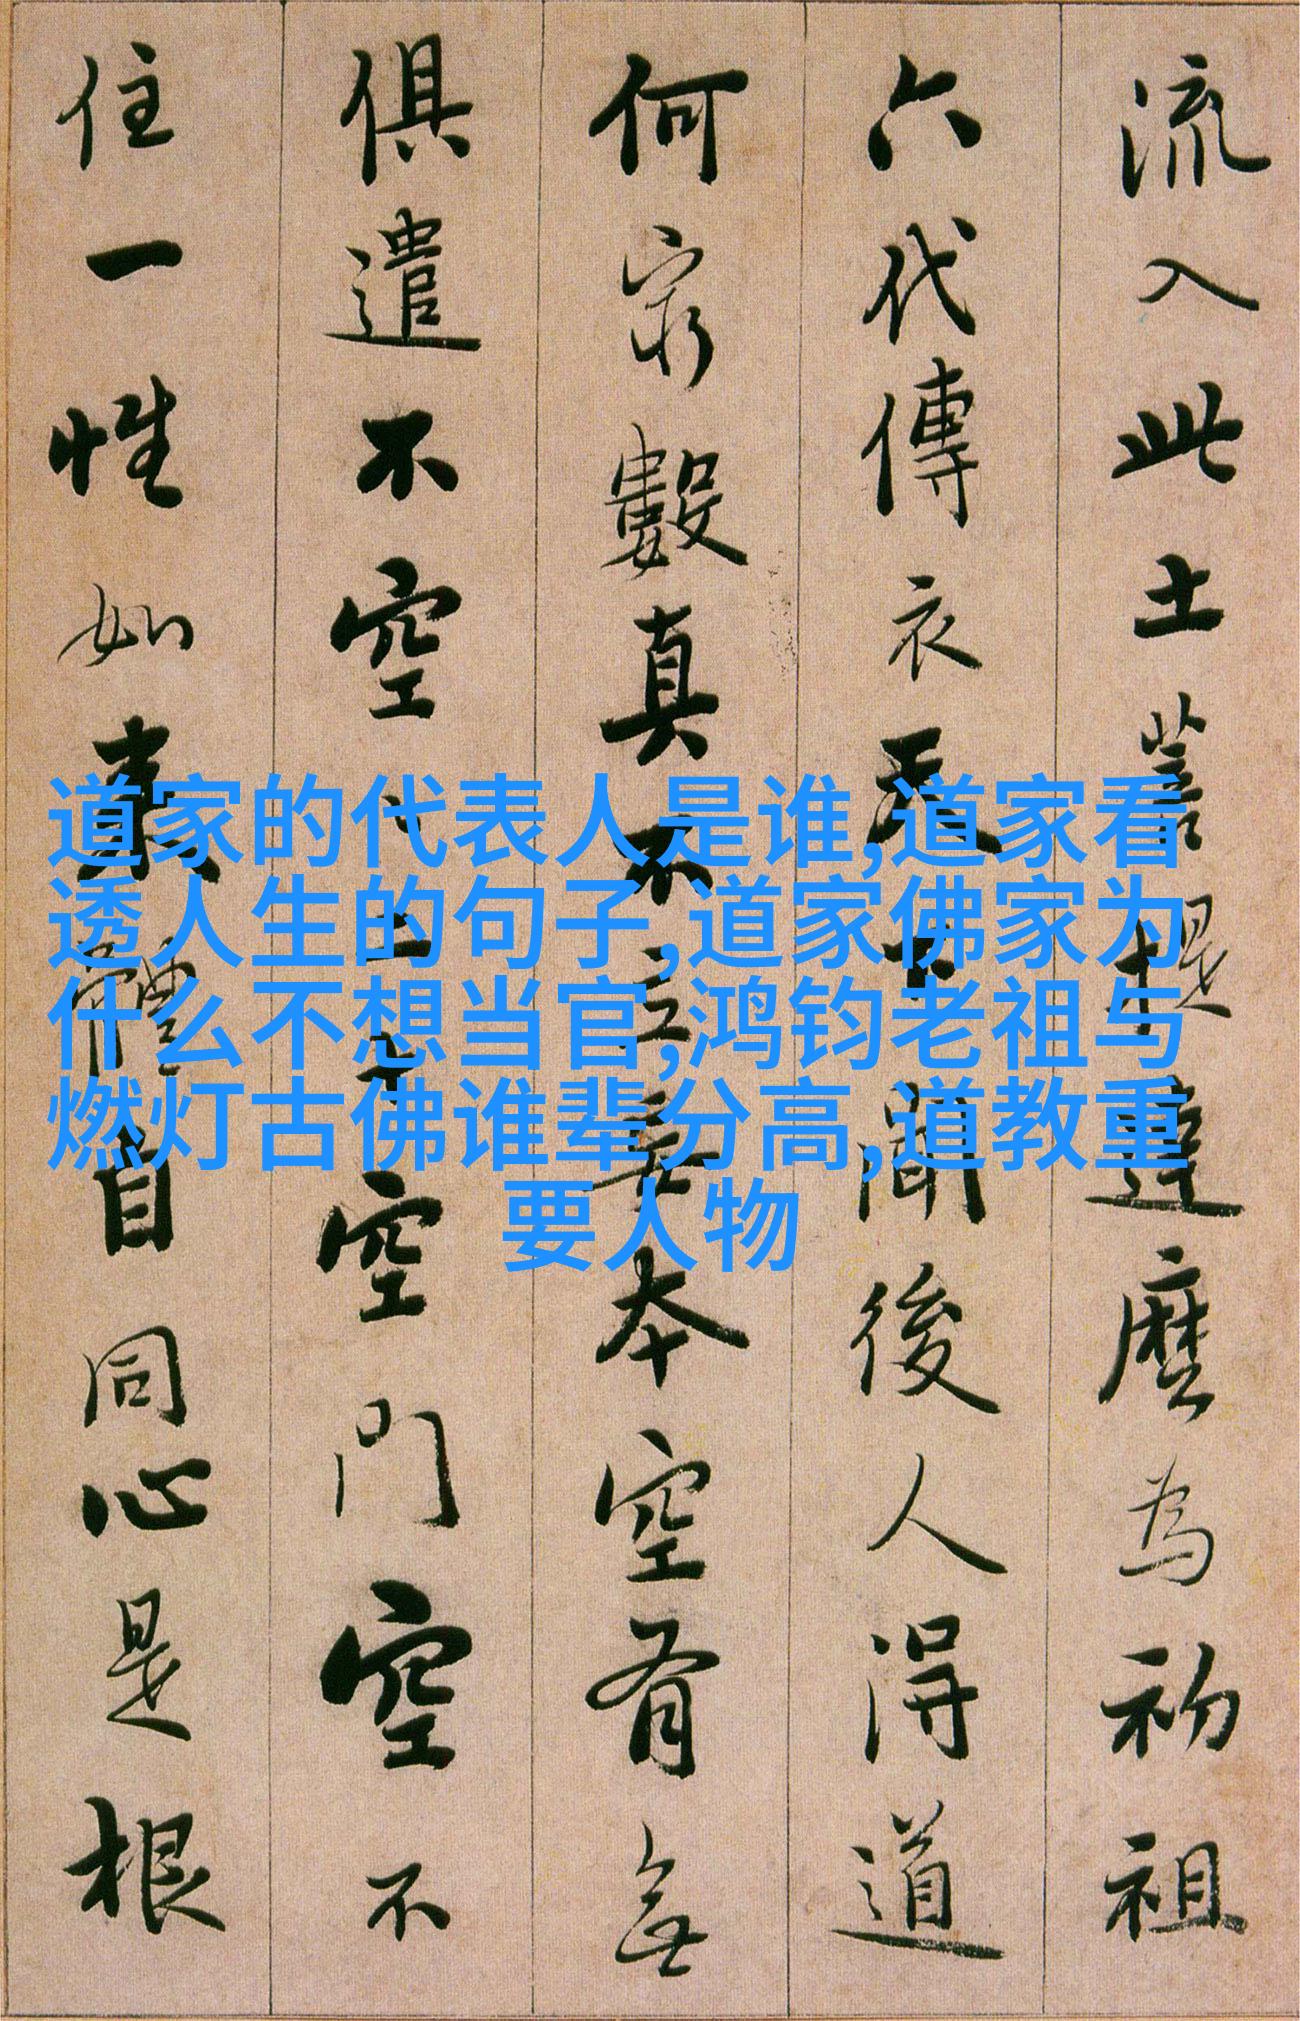 流入此土菩提達磨為初祖
六代傳衣天下聞後人得道
何窮數真不立妄本空有無
俱遣不空二十空門空不
住一性如来體自同心是根
道家的代表人是谁,道家看
透人生的句子,道家佛家为
什么不想当官,鸿钧老祖与
燃灯古佛谁辈分高,道教重
要人物